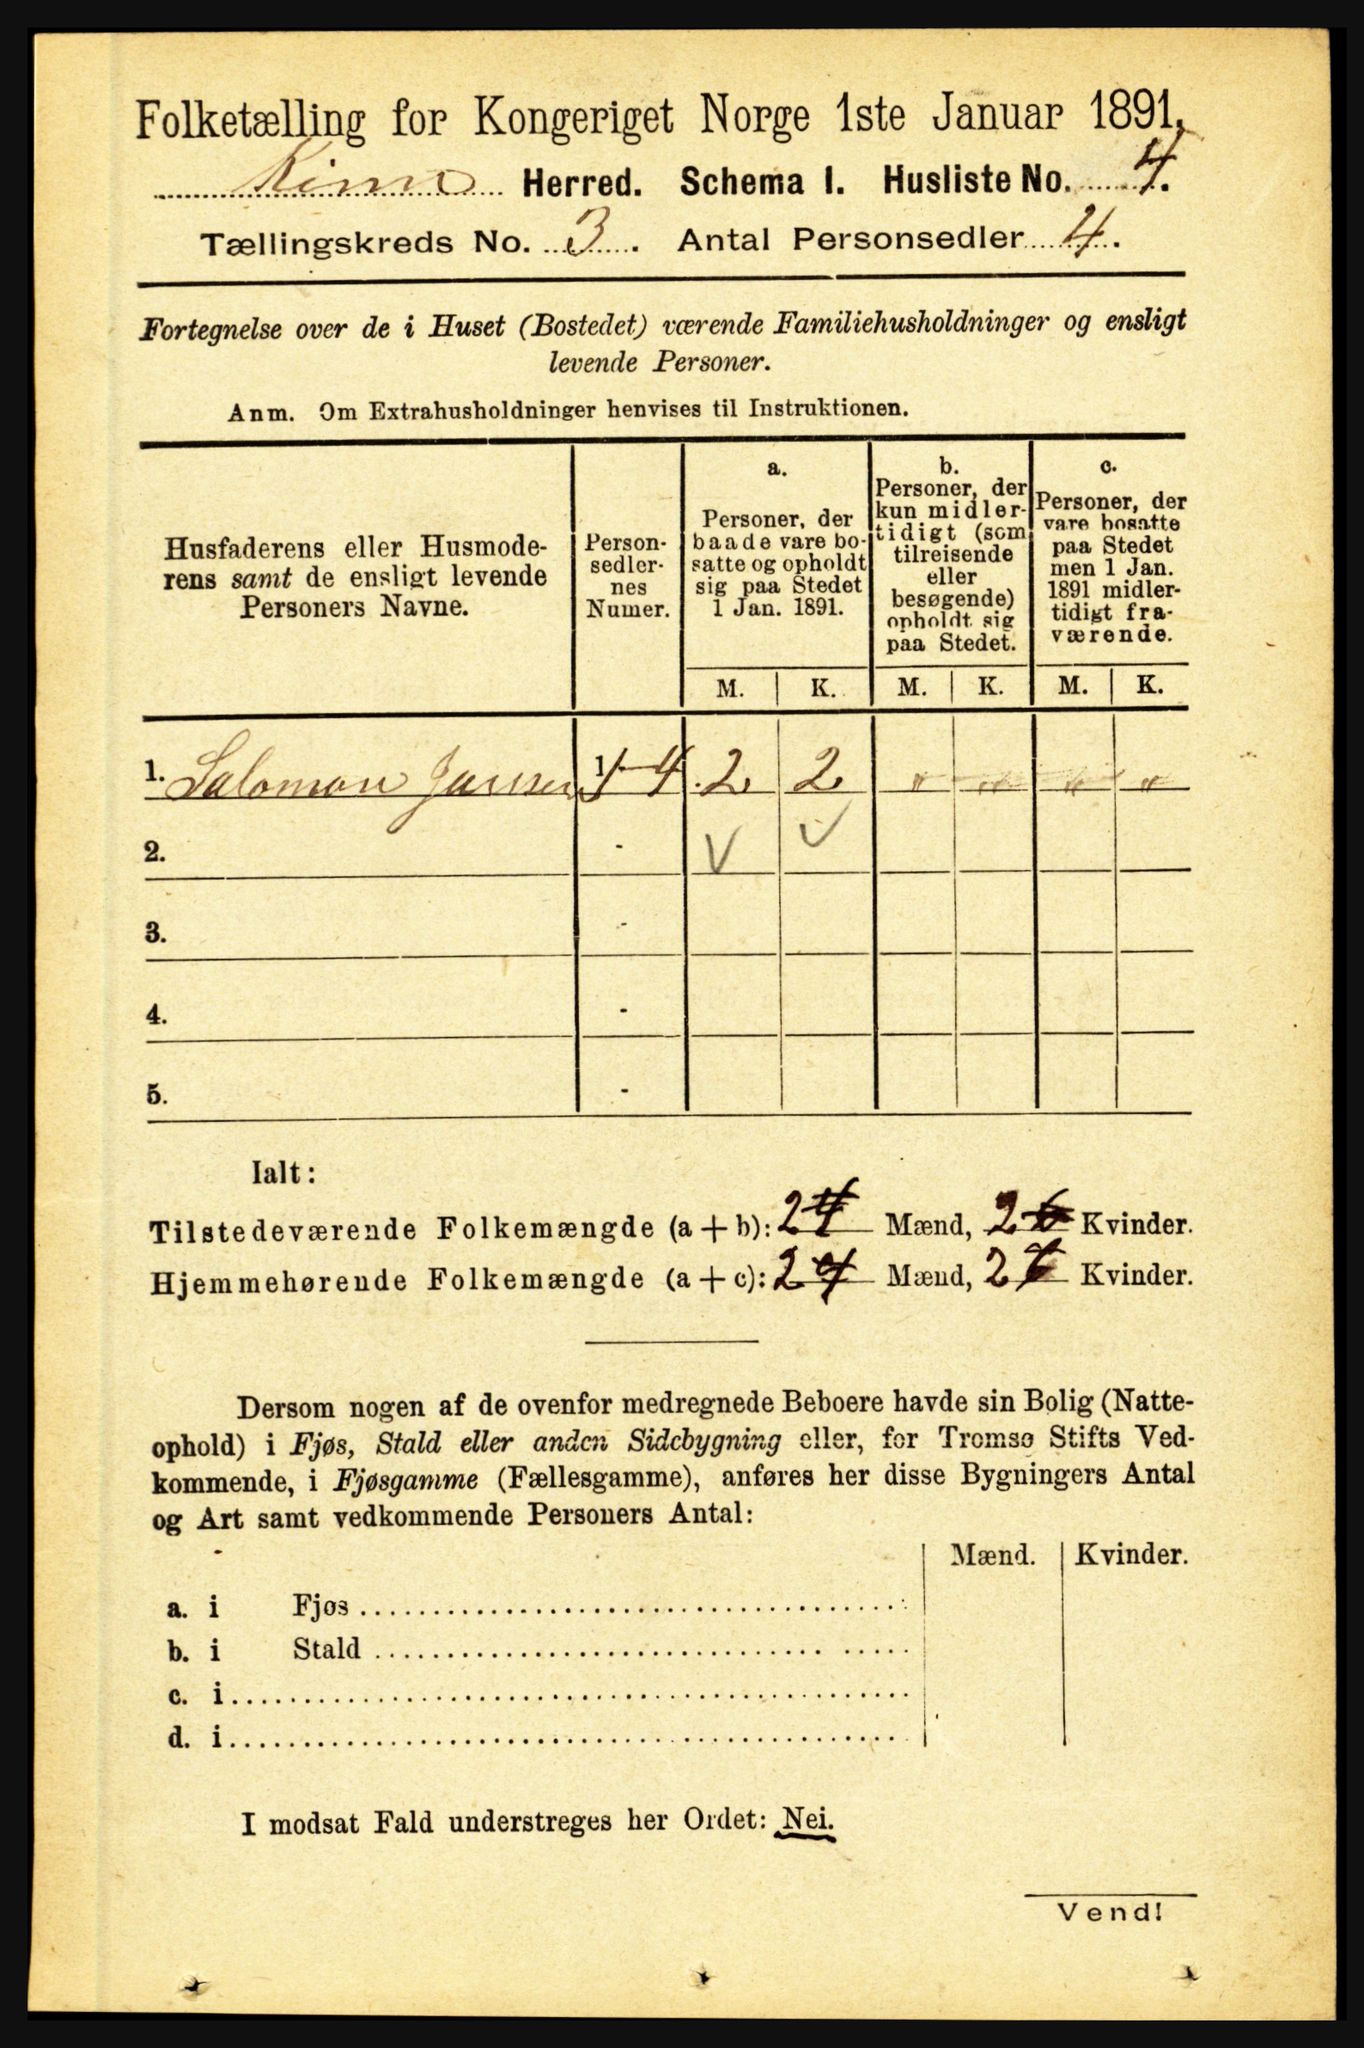 Folketælling for Kongeriget Norge 1ste Januar 1891.
Kinn Herred. Schema I. Husliste No. 4.
Tællingskreds No. 3. Antal Personsedler 4.
Fortegnelse over de i Huset (Bostedet) værende Familiehusholdninger og ensligt
levende Personer.
Anm. Om Extrahusholdninger henvises til Instruktionen.
Husfaderens eller Husmode-
rens samt de ensligt levende
Personers Navne.
Person-
sedler-
nes
Numer.
a.
Personer, der
baade vare bo-
satte og opholdt
sig paa Stedet
1 Jan. 1891.
b.
Personer, der
kun midler-
tidigt (som
tilreisende
eller
besøgende)
opholdt sig
paa Stedet.
c.
Personer, der
vare bosatte
paa Stedet
men 1 Jan.
1891 midler-
tidigt fra-
værende.
M. K. M. K. M. K.
1. Salomon Jansen 1-4 2 2 " " " "
2. -
3. -
4. -
5. -
Ialt:
Tilstedeværende Folkemængde (a + b): 2 Mænd, 2 Kvinder.
Hjemmehørende Folkemængde (a + c): 2 Mænd, 2 Kvinder.
Dersom nogen af de ovenfor medregnede Beboere havde sin Bolig (Natte-
ophold) i Fjøs, Stald eller anden Sidebygning eller, for Tromsø Stifts Ved-
kommende, i Fjøsgamme (Fællesgamme), anføres her disse Bygningers Antal
og Art samt vedkommende Personers Antal:
Mænd. Kvinder.
a. i Fjøs
b. i Stald
c. i
d. i
I modsat Fald understreges her Ordet: Nei.
Vend!